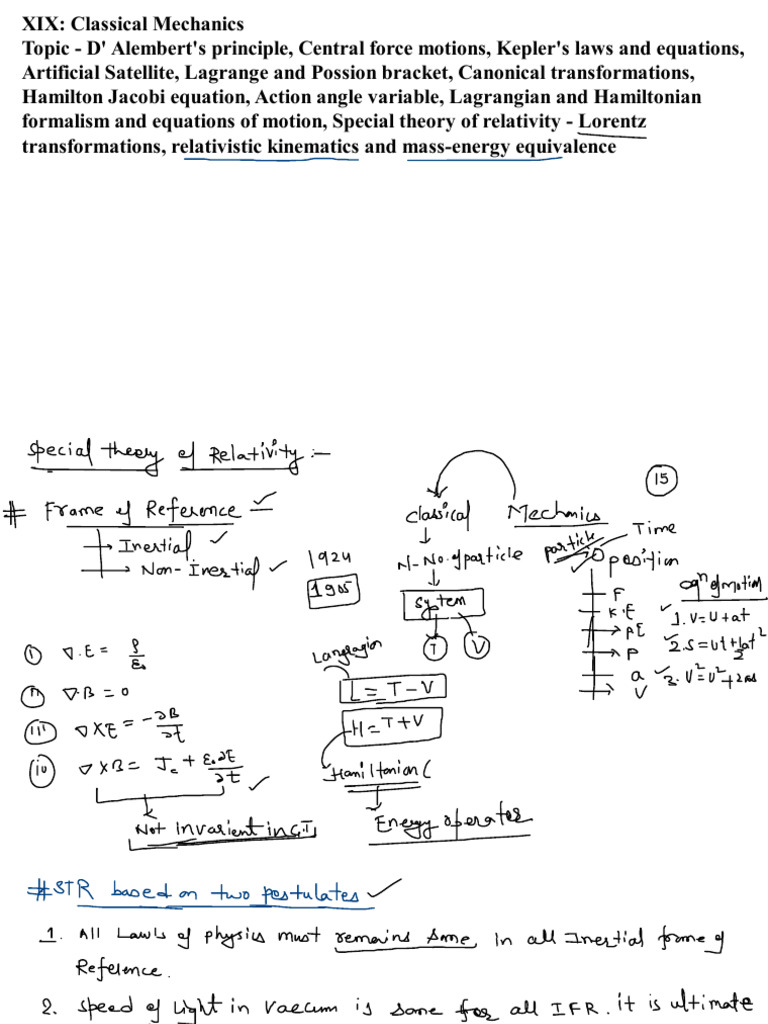 XIX: Classical Mechanics
Topic - D' Alembert's principle, Central force motions, Kepler's laws and equations,
Artificial Satellite, Lagrange and Possion bracket, Canonical transformations,
Hamilton Jacobi equation, Action angle variable, Lagrangian and Hamiltonian
formalism and equations of motion, Special theory of relativity - Lorentz
transformations, relativistic kinematics and mass-energy equivalence
Special theory of Relativity :-
# Frame of Reference
Inertial
Non-Inertial
1924
1905
(i) ∇.E = ρ/ε₀
(ii) ∇.B = 0
(iii) ∇×E = -∂B/∂t
(iv) ∇×B = J_c + ε₀∂E/∂t
Not invarient in G.T
Classical Mechnics
N-No. of particle
System
T V
L = T - V
H = T + V
Hamiltonion (
Energy operator
15
particle
Time
position
F
K.E
PE
P
a
V
eqⁿ of motion
1. V=U+at
2. S=Ut+½at²
3. V²=U²+2as
# STR based on two postulates
1. All Laws of physics must remains same in all Inertial frame of
Reference.
2. Speed of Light in Vaecum is same for all IFR. it is ultimate